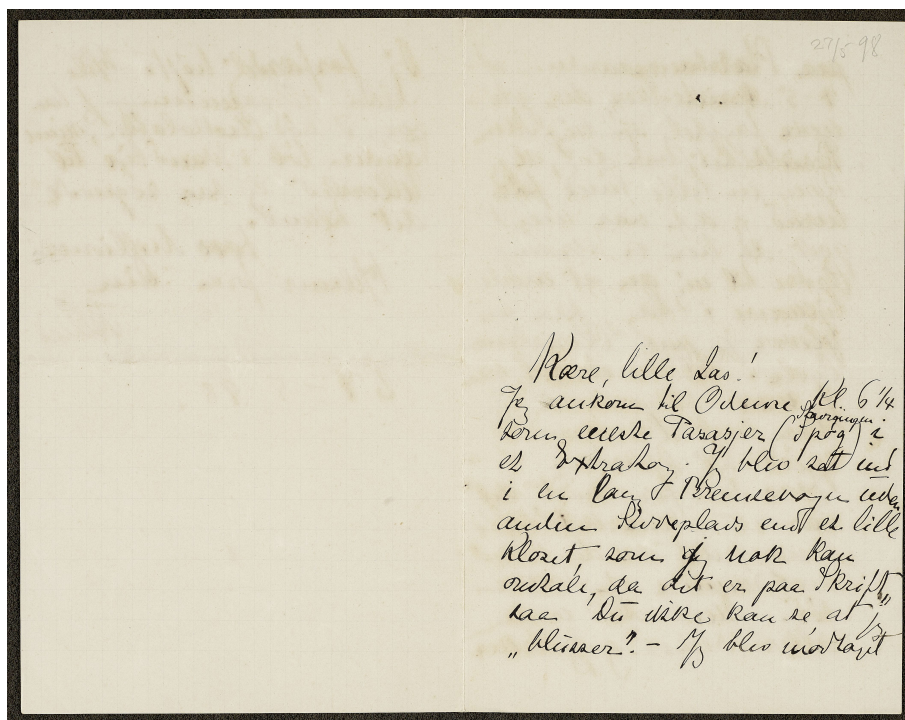 27/5 98
Kære, lille Las!
Jeg ankom til Odense Kl. 6 1/4
som eneste Pasasjer (Spøg) i
et Extratog. Jeg blev sat ind
i en lang Bremsevogn uden
anden Siddeplads end et lille
Kloset, som jeg nok kan
omtale, da det er paa Skrift,
saa Du ikke kan se at jeg
„blusser”. – Jeg blev modtaget